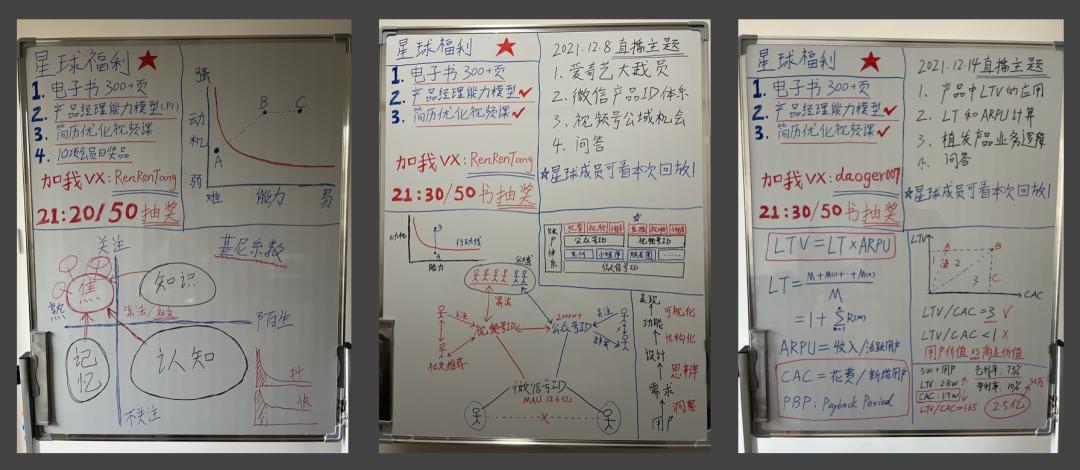 星球福利 ★
1. 电子书300+页
2. 产品经理能力模型(P1)
3. 简历优化视频课
4. 10项会员日奖品
加我VX:RenRenTang
21:20/50抽奖
强
动机
弱
A
B
C
难
能力
易
关注
基尼系数
焦
知识
熟
算法/社交
陌生
记忆
认知
抖
快
不关注
星球福利 ★
1. 电子书300+页
2. 产品经理能力模型✓
3. 简历优化视频课✓
加我VX:RenRenTang
21:30/50书抽奖
2021.12.8直播主题
1. 爱奇艺大裁员
2. 微信产品ID体系
3. 视频号公域机会
4. 问答
☆星球成员可看本次回放!
动机
B
行动线
A
能力
账户体系
公众号ID
视频号ID
支付
小程序
朋友圈
······
微信号ID
算法
关注
视频号ID
社交推荐
2000w+
公众号ID
关注
微信号ID
MAU 12.6亿
X
表现
可视化
功能
结构化
设计
思辨
需求
洞察
用户
星球福利 ★
1. 电子书300+页
2. 产品经理能力模型✓
3. 简历优化视频课✓
加我VX:daoger007
21:30/50书抽奖
2021.12.14直播主题
1. 产品中LTV的应用
2. LT和ARPU计算
3. 植发产品业务逻辑
4. 问答
☆星球成员可看本次回放!
LTV=LT×ARPU
ARPU=收入/活跃用户
CAC=花费/新增用户
PBP:Payback Period
LTV
A
B
1
2
3
C
CAC
LTV/CAC=3 ✓
LTV/CAC<1 X
用户价值 VS 商业价值
5W+用户
毛利率:73%
LTV:2.8W
净利率:10%
CAC:1.7W
50万
LTV/CAC=1.65
2.5亿